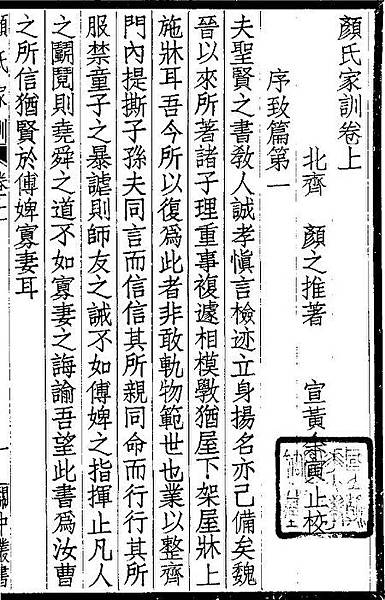 顏氏家訓卷上
北齊 顏之推著 宣黃 校
序致篇第一
夫聖賢之書敎人誠孝愼言檢迹立身揚名亦己備矣魏
晉以來所著諸子理重事複遞相模斆猶屋下架屋牀上
施牀耳吾今所以復爲此者非敢軌物範世也業以整齊
門內提撕子孫夫同言而信信其所親同命而行行其所
服禁童子之暴謔則師友之誡不如傅婢之指揮止凡人
之鬬鬩則堯舜之道不如寡妻之誨諭吾望此書爲汝曹
之所信猶賢於傅婢寡妻耳
顏氏家訓 卷上 一 關中叢書